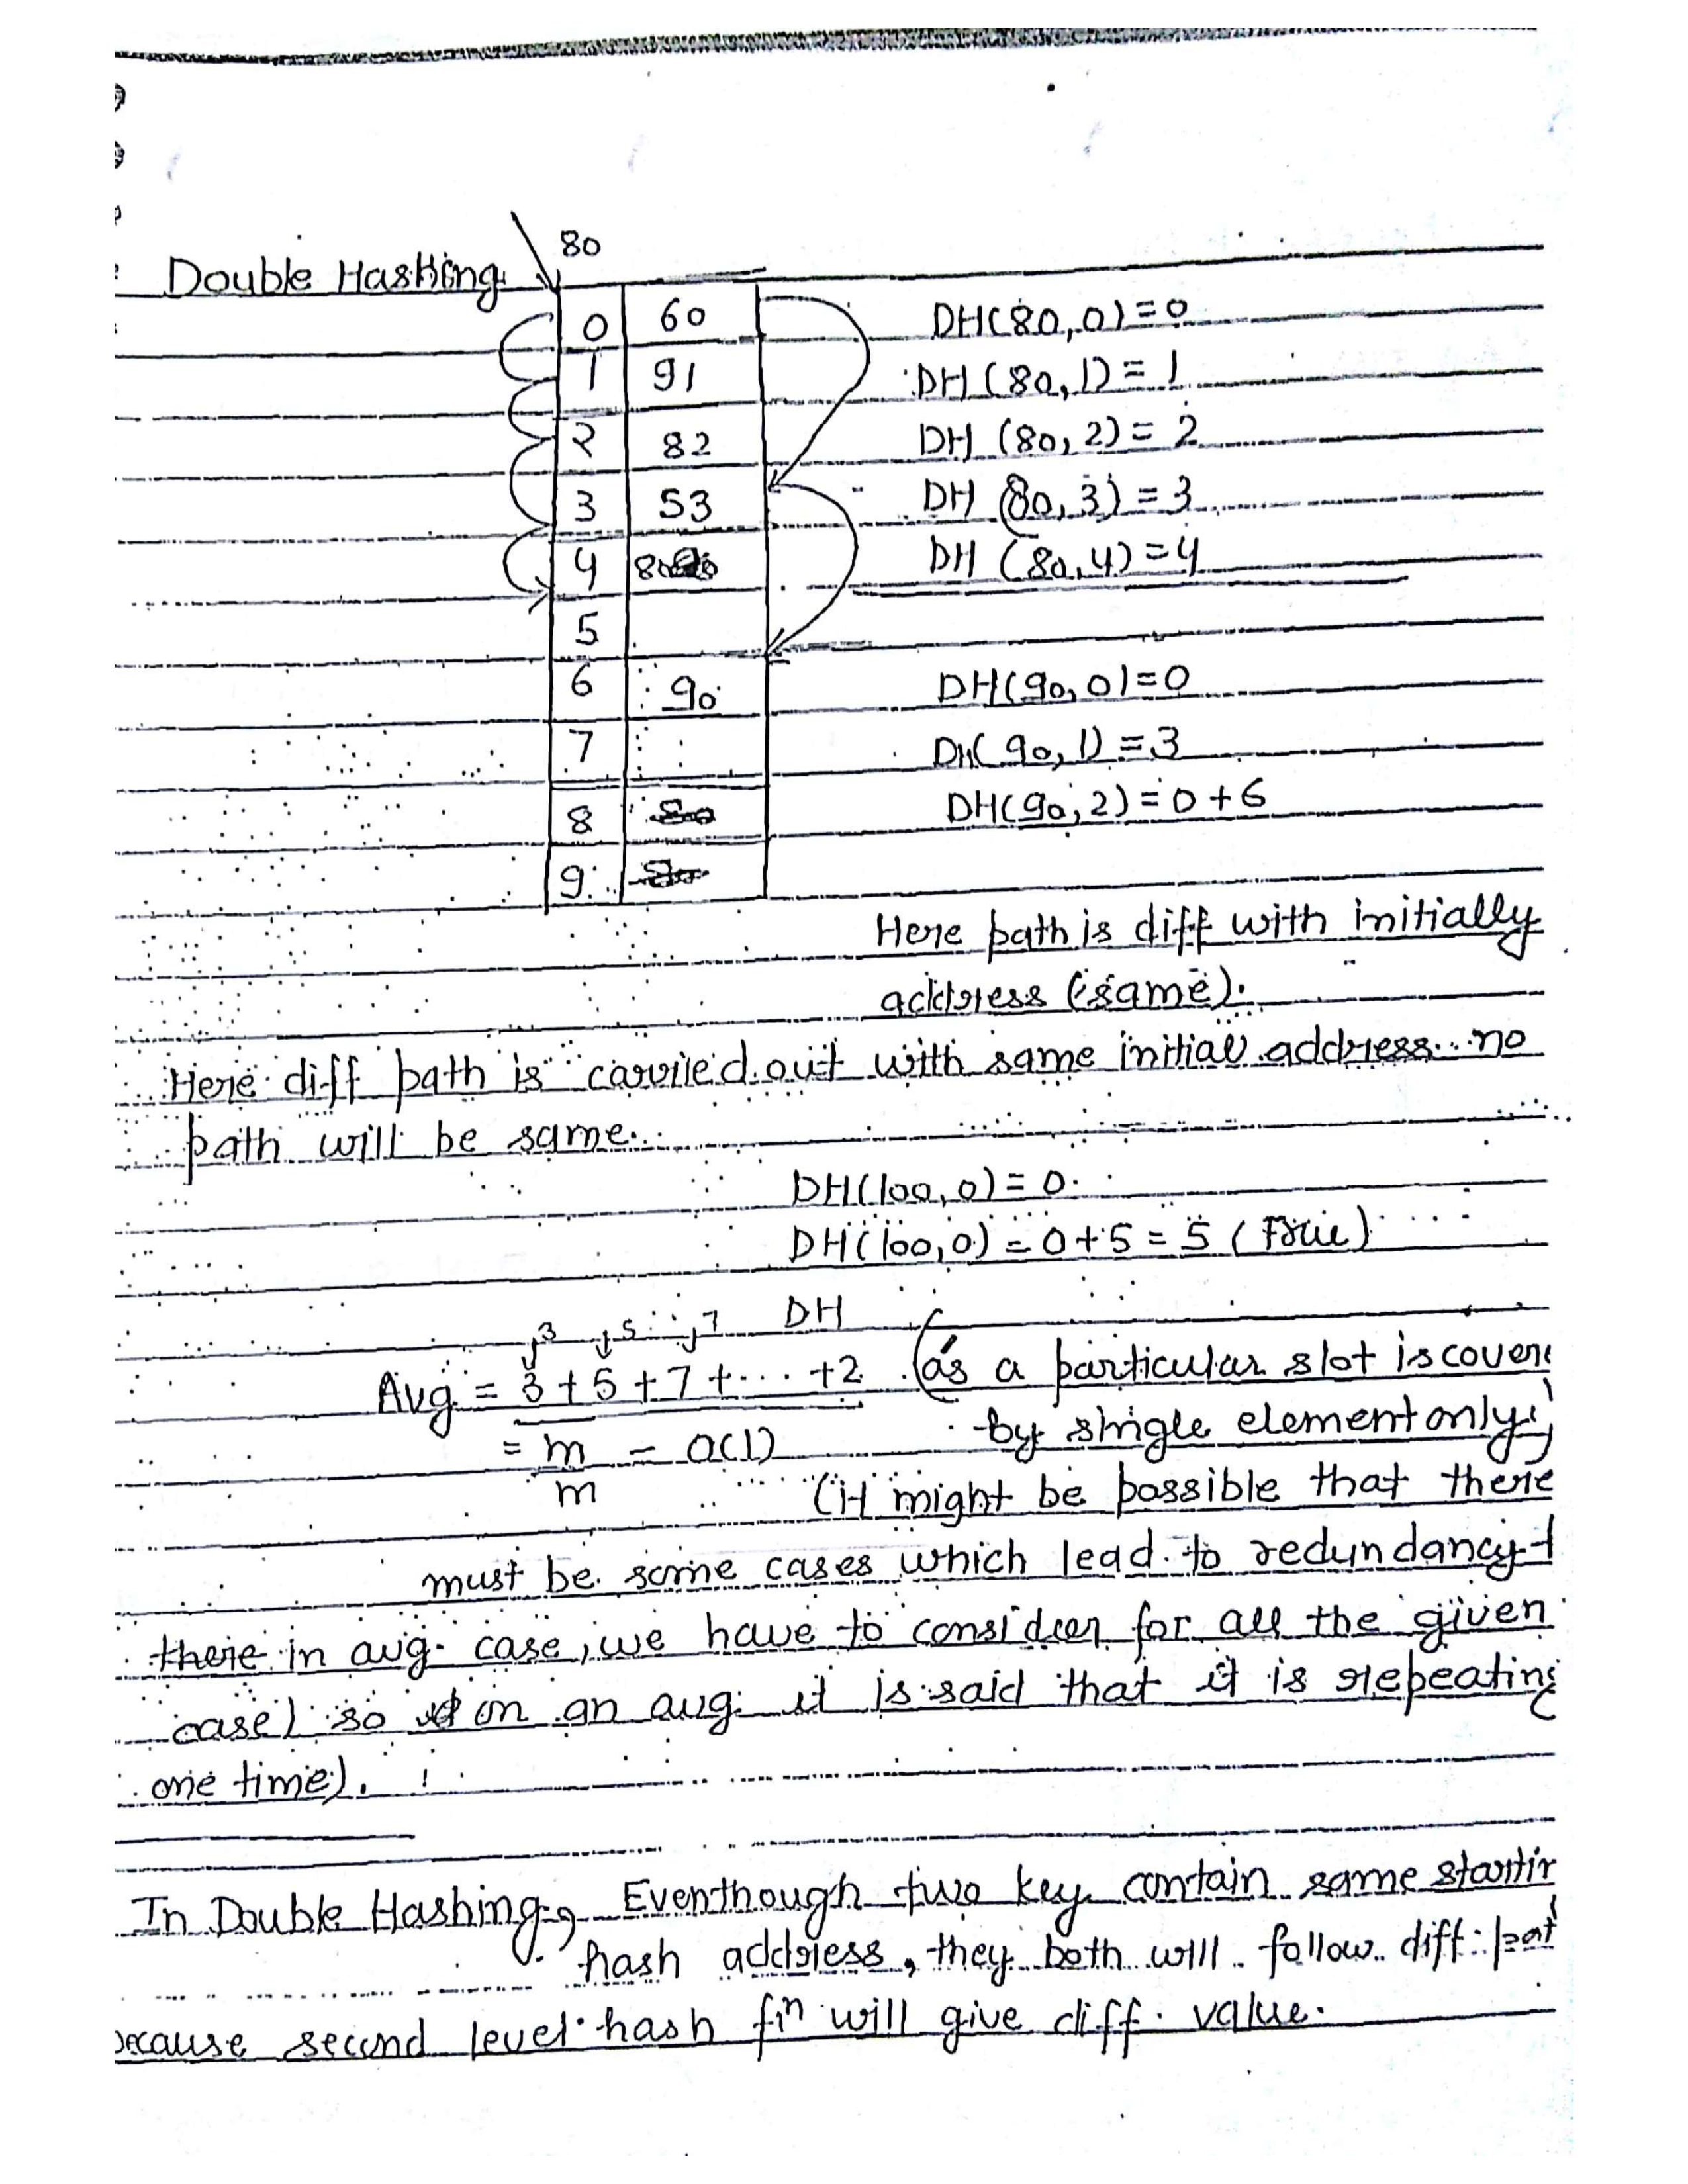 80
Double Hashing
0 60 DH(80,0)=0
1 91 DH(80,1)=1
2 82 DH(80,2)=2
3 53 DH(80,3)=3
4 80 DH(80,4)=4
5
6 90 DH(90,0)=0
7 DH(90,1)=3
8 DH(90,2)=0+6
9
Here path is diff with initially
address (same).
Here diff path is carried out with same initial address no
path will be same.
DH(100,0)=0.
DH(100,0)=0+5=5 (Free)
3 5 7 DH
Avg = 3+5+7+...+2 (as a particular slot is cover
= m = O(1) by single element only)
m (it might be possible that there
must be some cases which lead to redundancy
there in avg. case, we have to consider for all the given
case) so in an avg. it is said that it is repeating
one time).
In Double Hashing, Eventhough two key contain same startin
hash address, they both will follow diff. pat
because second level hash fn will give diff. value.